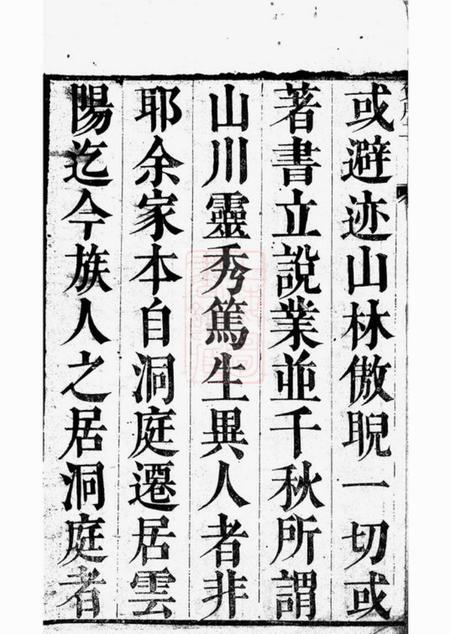 或避迹山林傲睨一切或
著書立說業並千秋所謂
山川靈秀篤生異人者非
耶余家本自洞庭遷居雲
陽迄今族人之居洞庭者